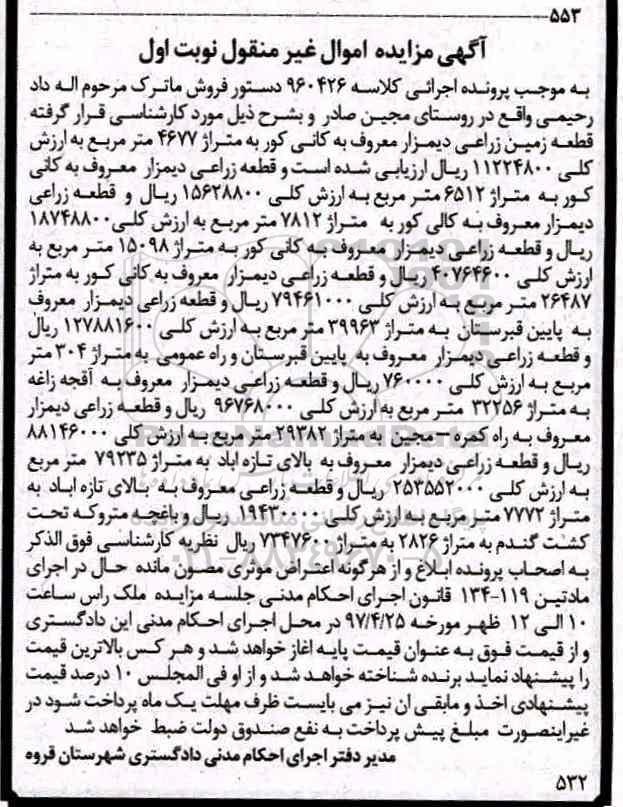 ۵۵۳
آگهی مزایده اموال غیر منقول نوبت اول
به موجب پرونده اجرائی کلاسه ۹۶۰۴۲۶ دستور فروش ماترک مرحوم اله داد
رحیمی واقع در روستای مجین صادر و بشرح ذیل مورد کارشناسی قرار گرفته
قطعه زمین زراعی دیمزار معروف به کانی کور به متراژ ۴۶۷۷ متر مربع به ارزش
کلی ۱۱۲۲۴۸۰۰ ریال ارزیابی شده است و قطعه زراعی دیمزار معروف به کانی
کور به متراژ ۶۵۱۲ متر مربع به ارزش کلی ۱۵۶۲۸۸۰۰ ریال و قطعه زراعی
دیمزار معروف به کالی کور به متراژ ۷۸۱۲ متر مربع به ارزش کلی ۱۸۷۴۸۸۰۰
ریال و قطعه زراعی دیمزار معروف به کانی کور به متراژ ۱۵۰۹۸ متر مربع به
ارزش کلی ۴۰۷۶۴۶۰۰ ریال و قطعه زراعی دیمزار معروف به کانی کور به متراژ
۲۶۴۸۷ متر مربع به ارزش کلی ۷۹۴۶۱۰۰۰ ریال و قطعه زراعی دیمزار معروف
به پایین قبرستان به متراژ ۳۹۹۶۳ متر مربع به ارزش کلی ۱۲۷۸۸۱۶۰۰ ریال
و قطعه زراعی دیمزار معروف به پایین قبرستان و راه عمومی به متراژ ۳۰۴ متر
مربع به ارزش کلی ۷۶۰۰۰۰ ریال و قطعه زراعی دیمزار معروف به آقجه زاغه
به متراژ ۳۲۲۵۶ متر مربع به ارزش کلی ۹۶۷۶۸۰۰۰ ریال و قطعه زراعی دیمزار
معروف به راه کمره – مجین به متراژ ۲۹۳۸۲ متر مربع به ارزش کلی ۸۸۱۴۶۰۰۰
ریال و قطعه زراعی دیمزار معروف به بالای تازه اباد به متراژ ۷۹۲۳۵ متر مربع
به ارزش کلی ۲۵۳۵۵۲۰۰۰ ریال و قطعه زراعی معروف به بالای تازه اباد به
متراژ ۷۷۷۲ متر مربع به ارزش کلی ۱۹۴۳۰۰۰۰ ریال و باغچه متروکه تحت
کشت گندم به متراژ ۲۸۲۶ به متراژ ۷۳۴۷۶۰۰ ریال نظریه کارشناسی فوق الذکر
به اصحاب پرونده ابلاغ و از هرگونه اعتراض موثری مصون مانده حال در اجرای
مادتین ۱۱۹-۱۳۴ قانون اجرای احکام مدنی جلسه مزایده ملک راس ساعت
۱۰ الی ۱۲ ظهر مورخه ۹۷/۴/۲۵ در محل اجرای احکام مدنی این دادگستری
و از قیمت فوق به عنوان قیمت پایه اغاز خواهد شد و هر کس بالاترین قیمت
را پیشنهاد نماید برنده شناخته خواهد شد و از او فی المجلس ۱۰ درصد قیمت
پیشنهادی اخذ و مابقی ان نیز می بایست ظرف مهلت یک ماه پرداخت شود در
غیراینصورت مبلغ پیش پرداخت به نفع صندوق دولت ضبط خواهد شد
مدیر دفتر اجرای احکام مدنی دادگستری شهرستان قروه
۵۳۲